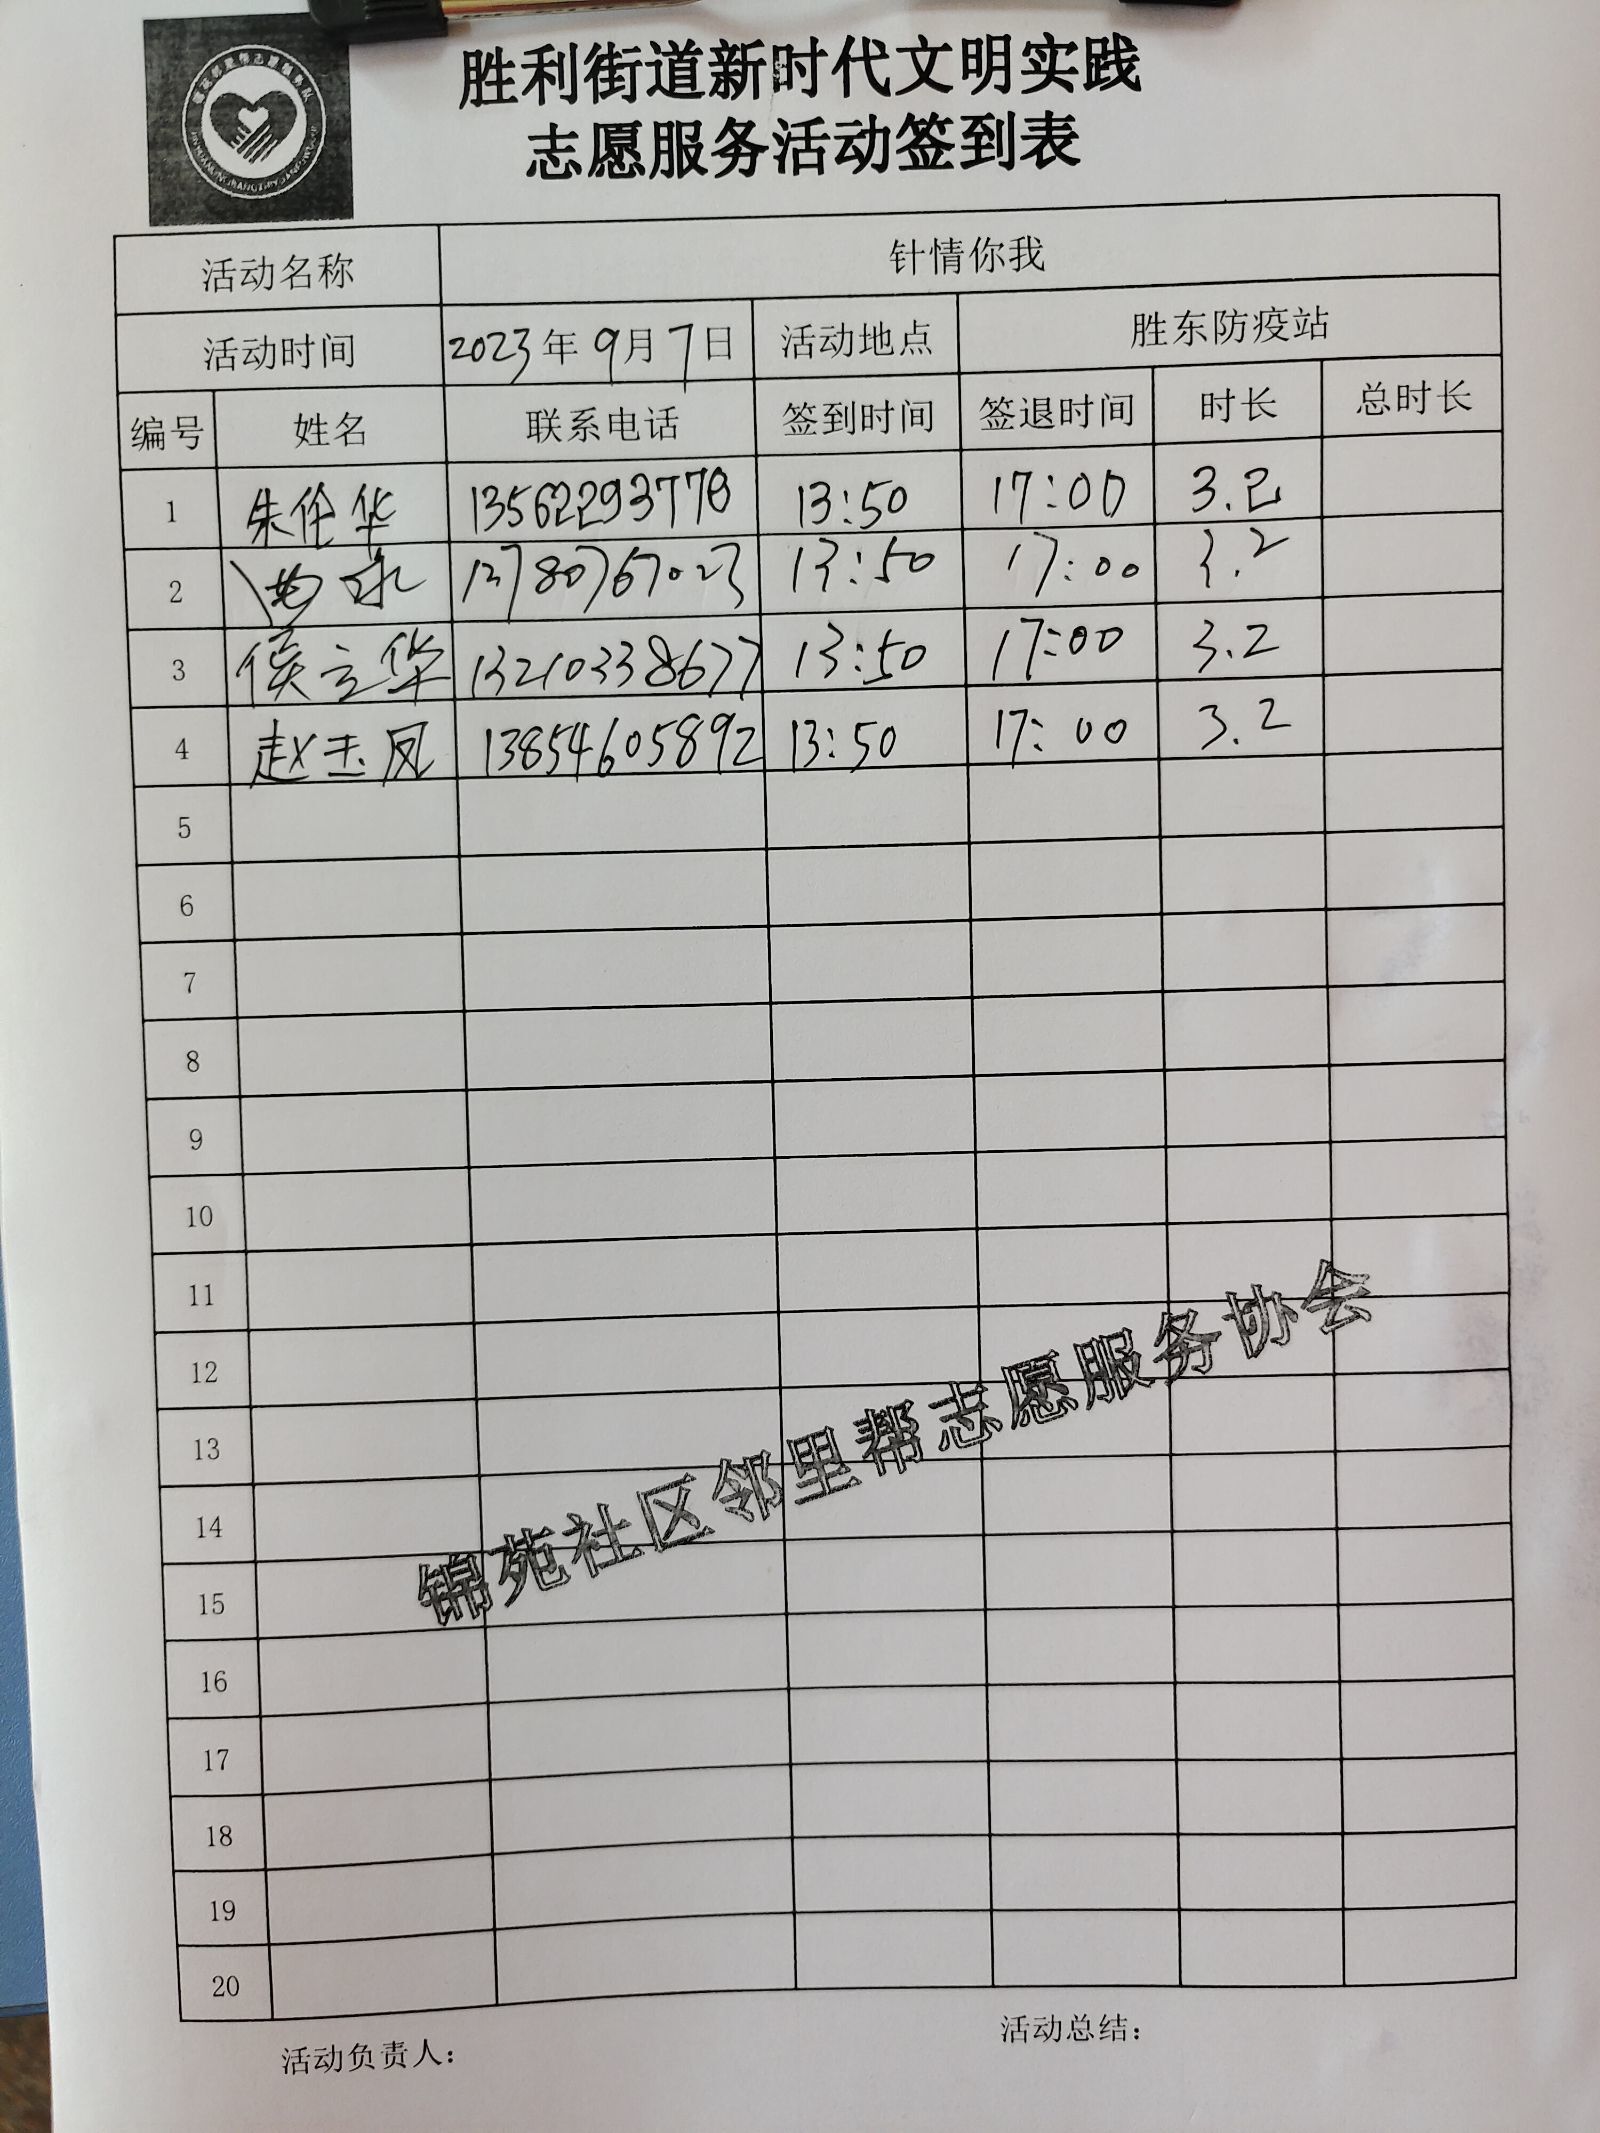 胜利街道新时代文明实践
志愿服务活动签到表
活动名称 针情你我
活动时间 2023年9月7日 活动地点 胜东防疫站
编号 姓名 联系电话 签到时间 签退时间 时长 总时长
1 朱伦华 13562293778 13:50 17:00 3.2
2 13780767023 13:50 17:00 3.2
3 侯立华 13210338677 13:50 17:00 3.2
4 赵玉凤 13854605892 13:50 17:00 3.2
5
6
7
8
9
10
11
12
13
14
15
16
17
18
19
20
锦苑社区邻里帮志愿服务协会
活动负责人：
活动总结：